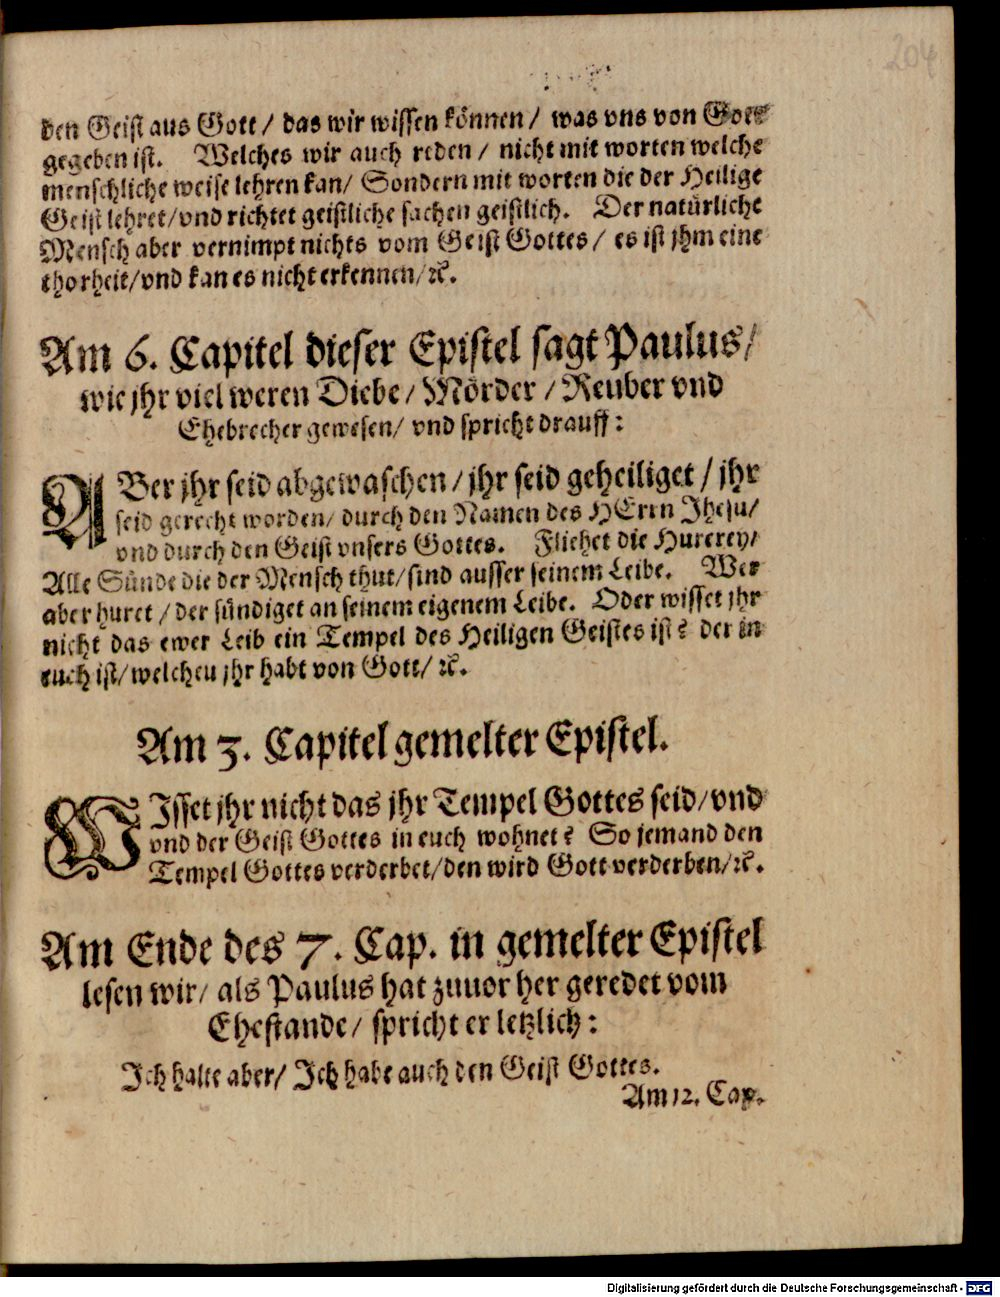 204
den Geist aus Gott / das wir wissen können / was vns von Gott
gegeben ist. Welches wir auch reden / nicht mit worten welche
menschliche weise lehren kan / Sondern mit worten die der Heilige
Geist lehret / vnd richtet geistliche sachen geistlich. Der natürliche
Mensch aber vernimpt nichts vom Geist Gottes / es ist jhm eine
thorheit / vnd kan es nicht erkennen / ꝛc.
Am 6. Capitel dieser Epistel sagt Paulus /
wie jhr viel weren Diebe / Mörder / Reuber vnd
Ehebrecher gewesen / vnd spricht drauff:
ABer jhr seid abgewaschen / jhr seid geheiliget / jhr
seid gerecht worden / durch den Namen des HErrn Jhesu /
vnd durch den Geist vnsers Gottes. Fliehet die Hurerey /
Alle Sünde die der Mensch thut / sind ausser seinem Leibe. Wer
aber huret / der sündiget an seinem eigenem Leibe. Oder wisset jhr
nicht das ewer Leib ein Tempel des Heiligen Geistes ist? der in
euch ist / welchen jhr habt von Gott / ꝛc.
Am 3. Capitel gemelter Epistel.
WIsset jhr nicht das jhr Tempel Gottes seid / vnd
vnd der Geist Gottes in euch wohnet? So jemand den
Tempel Gottes verderbet / den wird Gott verderben / ꝛc.
Am Ende des 7. Cap. in gemelter Epistel
lesen wir / als Paulus hat zuuor her geredet vom
Ehestande / spricht er letzlich:
Ich halte aber / Ich habe auch den Geist Gottes.
Am 12. Cap.
Digitalisierung gefördert durch die Deutsche Forschungsgemeinschaft - DFG